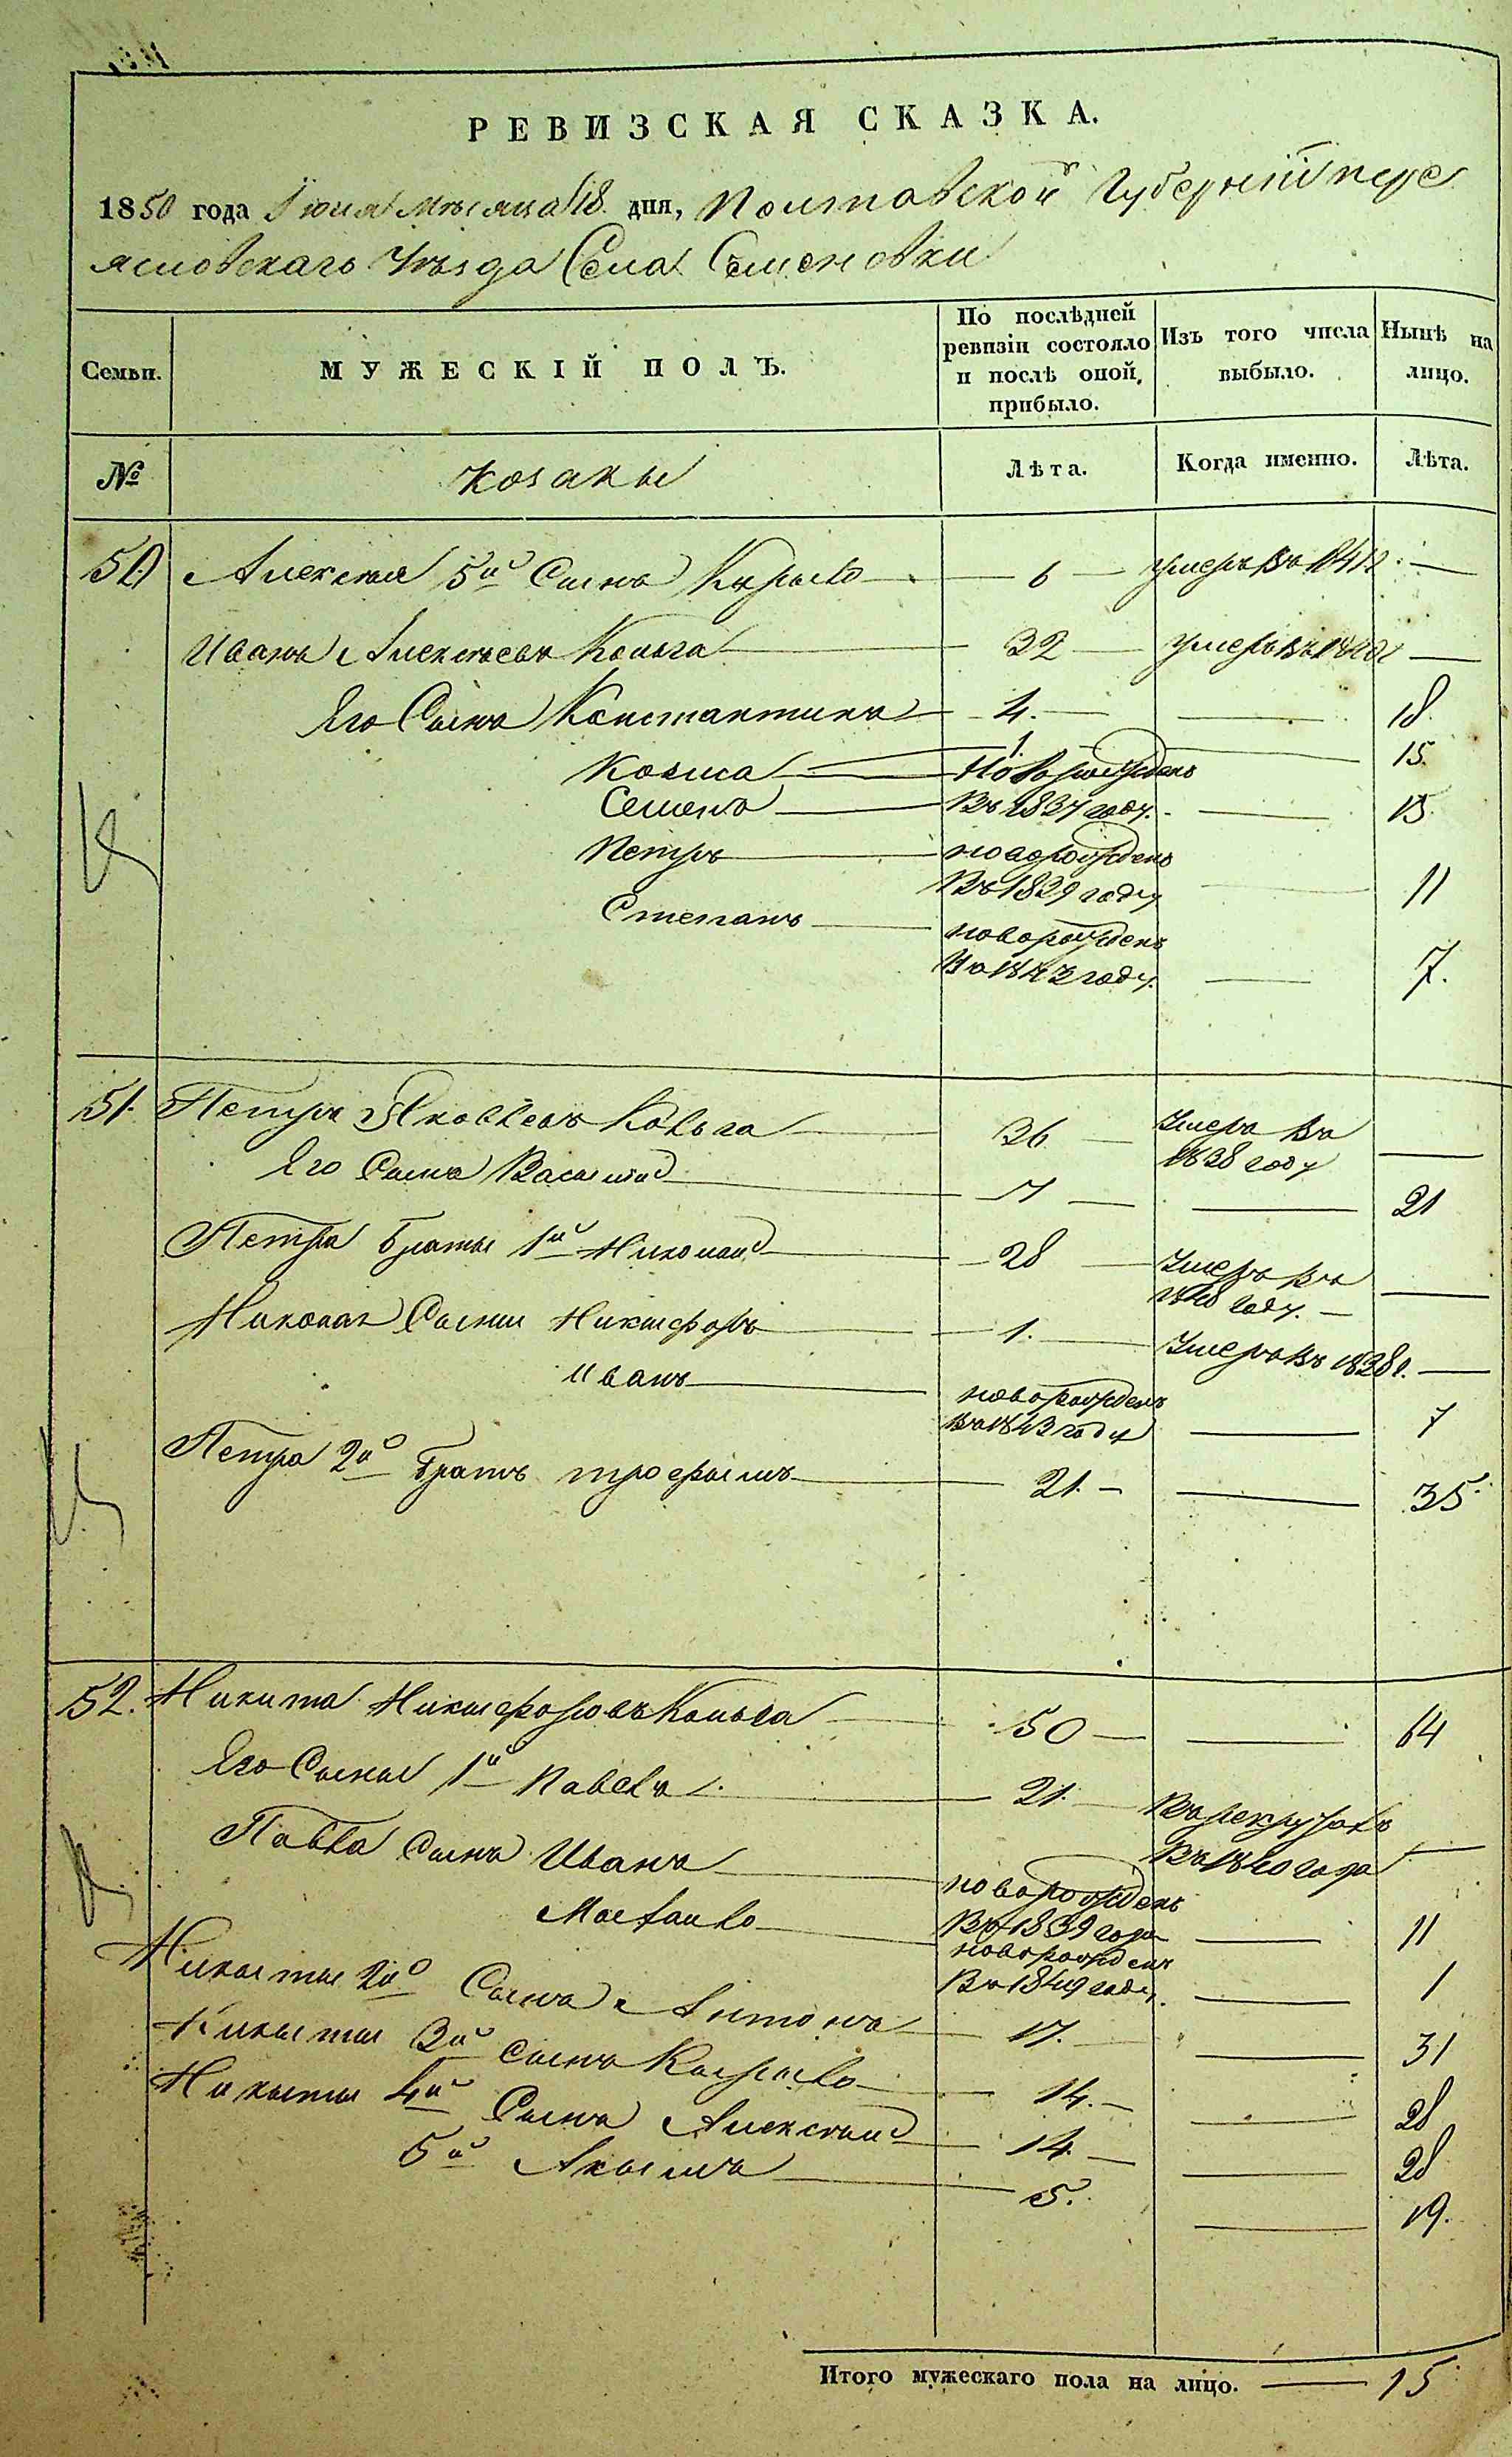 РЕВИЗСКАЯ СКАЗКА.
1850 года Іюня Мѣсяца 18 дня, Полтавской Губерніи пере
яславскаго Уѣзда Села Семеновки
Семьи. МУЖЕСКІЙ ПОЛЪ. По послѣдней ревизіи состояло и послѣ оной, прибыло. Изъ того числа выбыло. Нынѣ на лицо.
№ козаки Лѣта. Когда именно. Лѣта.
50 Алексѣя 5й Сынъ Кирыло 6 умеръ въ 184
Иванъ Алексѣевъ Кольга 32 умеръ въ
Его Сынъ Константинъ 4. 18.
Козма 1. 15.
Семенъ новорожденъ въ 1837 году. 13.
Петръ новорожденъ въ 1839 году 11
Степанъ новорожденъ въ 1843 году. 7.
51. Петръ Яковлевъ Кольга 36 Умеръ въ 1838 году
Его Сынъ Василій 7 21
Петра Браты 1й Николай 28 Умеръ въ 1848 году.
Николая Сыны Никифоръ 1. Умеръ въ 1838 г.
Иванъ новорожденъ въ 1843 году 7
Петра 2й Братъ трофымъ 21. 35.
52. Никита Никифоровъ Кольга 50 64
Его Сыны 1й Павелъ 21. Въ рекрутахъ въ 1840 года
Павла Сынъ Иванъ новорожденъ въ 1839 года 11
новорожденъ въ 1849 году. 1
Никиты 2й Сынъ Антонъ 17. 31
Никиты 3й Сынъ Кырыло 14. 28
Никиты 4й Сынъ Алексѣй 14. 28
5й Акымъ 5. 19.
Итого мужескаго пола на лицо. 15